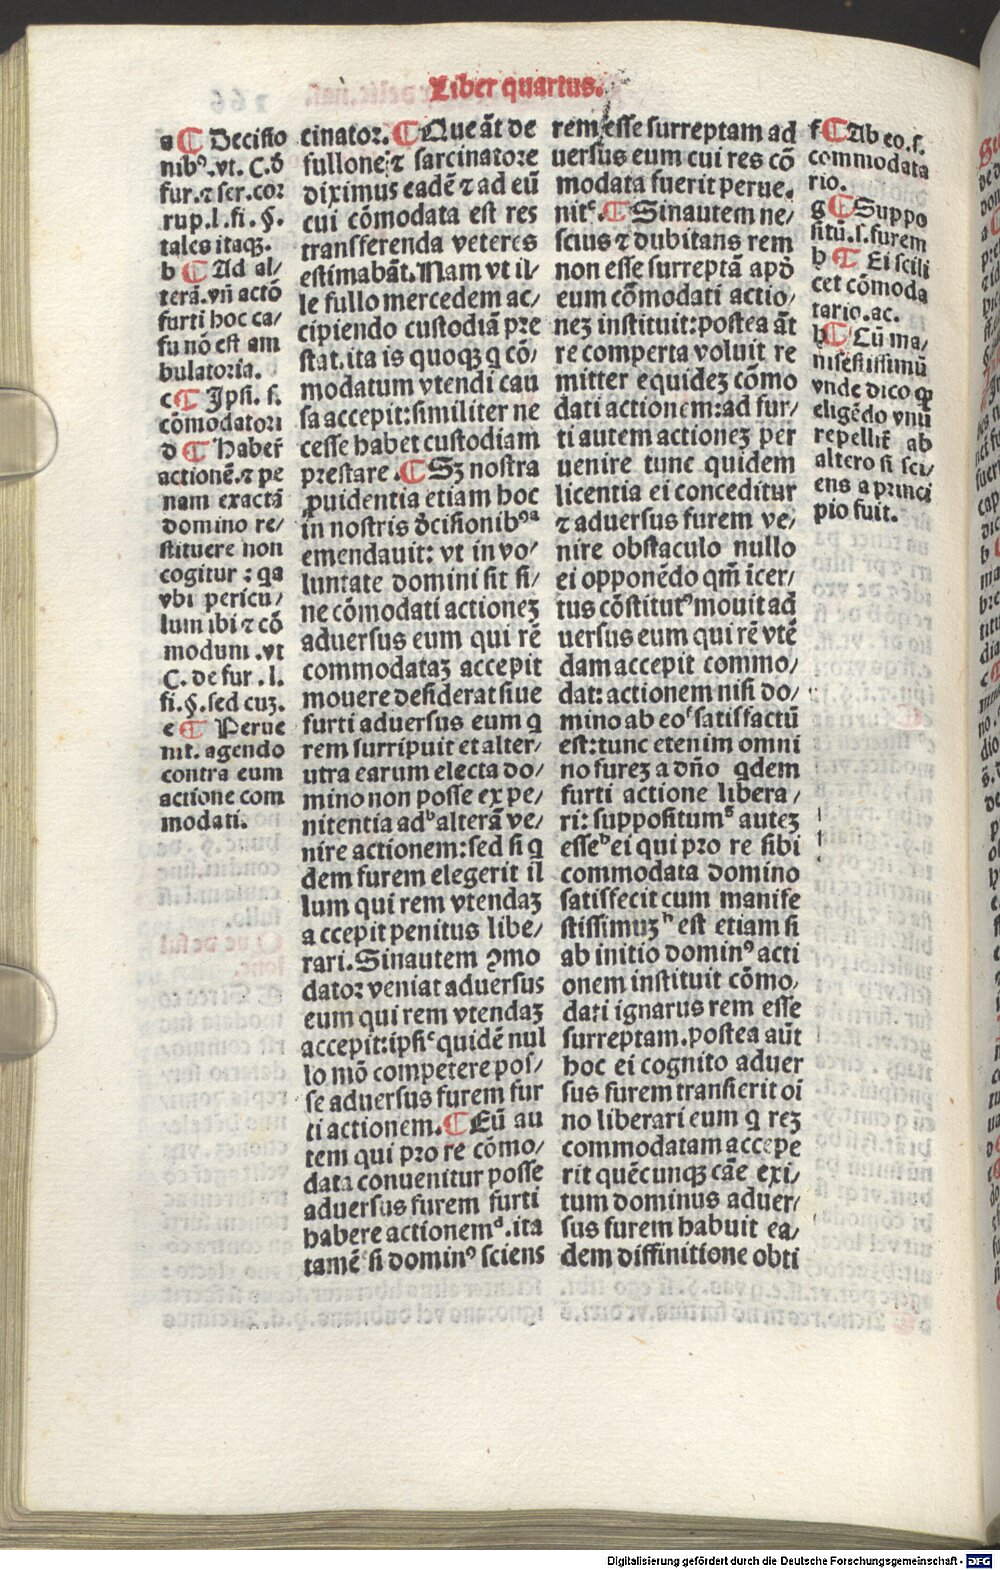 Liber quartus.
a ¶ Decisio
nibꝰ. vt. C. ð
fur. ⁊ ser. cor
rup. l. fi. §.
tales itaqꝫ.
b ¶ Ad al/
terā. vñ actō
furti hoc ca/
su nō est am
bulatoria.
c ¶ Ipsi. s.
cōmodatori
d ¶ Haber̄
actionē. ⁊ pe
nam exactā
domino re/
stituere non
cogitur: qa
vbi pericu/
lum ibi ⁊ cō
modum. vt
C. de fur. l.
fi. §. sed cuꝫ.
e ¶ Perue
nit. agendo
contra eum
actione com
modati.
cinator. ¶ Que āt de
fullone ⁊ sarcinatore
diximus eadē ⁊ ad eū
cui cōmodata est res
transferenda veteres
estimabāt. Nam vt il/
le fullo mercedem ac/
cipiendo custodiā pre
stat. ita is quoqꝫ q cō/
modatum vtendi cau
sa accepit: similiter ne
cesse habet custodiam
prestare. ¶ Sꝫ nostra
ꝓuidentia etiam hoc
in nostris ðcisionibꝰᵃ
emendauit: vt in vo/
luntate domini sit si/
ne cōmodati actioneꝫ
aduersus eum qui rē
commodataꝫ accepit
mouere desiderat siue
furti aduersus eum q
rem surripuit et alter/
utra earum electa do/
mino non posse ex pe/
nitentia adᵇ alterā ve/
nire actionem: sed si q
dem furem elegerit il
lum qui rem vtendaꝫ
accepit penitus libe/
rari. Sinautem ꝯmo
dator veniat aduersus
eum qui rem vtendaꝫ
accepit: ipsiᶜ quidē nul
lo mō competere pos/
se aduersus furem fur
ti actionem. ¶ Eū au
tem qui pro re cōmo/
data conuenitur posse
aduersus furem furti
habere actionemᵈ. ita
tamē si dominꝰ sciens
rem esse surreptam ad
uersus eum cui res cō
modata fuerit perue.
nitᵉ. ¶ Sinautem ne/
scius ⁊ dubitans rem
non esse surreptā apð
eum cōmodati actio/
neꝫ instituit: postea āt
re comperta voluit re
mitter equideꝫ cōmo
dati actionem: ad fur/
ti autem actioneꝫ per
uenire tunc quidem
licentia ei conceditur
⁊ aduersus furem ve/
nire obstaculo nullo
ei opponēdo qm̄ icer/
tus cōstitutꝰ mouit ad
uersus eum qui rē vtē
dam accepit commo/
dat: actionem nisi do/
mino ab eoᶠ satisfactū
est: tunc etenim omni
no fureꝫ a dn̄o qdem
furti actione libera/
ri: suppositumᵍ auteꝫ
esseʰ ei qui pro re sibi
commodata domino
satisfecit cum manife
stissimuꝫʰ est etiam si
ab initio dominꝰ acti
onem instituit cōmo/
dati ignarus rem esse
surreptam. postea aūt
hoc ei cognito aduer
sus furem transierit oī
no liberari eum q reꝫ
commodatam accepe
rit quēcunqꝫ cāe exi/
tum dominus aduer/
sus furem habuit ea/
dem diffinitione obti
f ¶ Ab eo. s.
commodata
rio.
g ¶ Suppo
sitū. s. furem
h ¶ Ei scili
cet cōmoda
tario. ac.
h ¶ Cū ma/
nifestissimū
vnde dico ꝙ
eligēdo vnū
repellit̄ ab
altero si sci/
ens a princi
pio fuit.
Digitalisierung gefördert durch die Deutsche Forschungsgemeinschaft - DFG